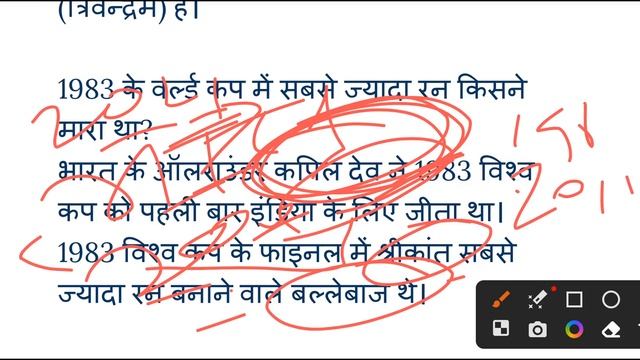 (त्रिवेन्द्रम) है।
1983 के वर्ल्ड कप में सबसे ज्यादा रन किसने
मारा था?
भारत के ऑलराउंडर कपिल देव ने 1983 विश्व
कप को पहली बार इंडिया के लिए जीता था।
1983 विश्व कप के फाइनल में श्रीकांत सबसे
ज्यादा रन बनाने वाले बल्लेबाज थे।
2011